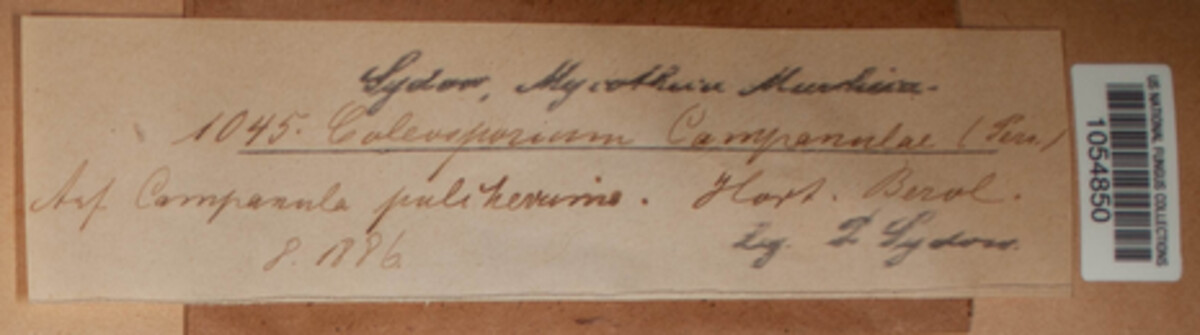 Sydow, Mycotheca Marchica.
1045. Coleosporium Campanulae (Pers.)
Auf Campanula pulcherrima. Hort. Berol.
8. 1886
Leg. P. Sydow.
US NATIONAL FUNGUS COLLECTIONS
1054850